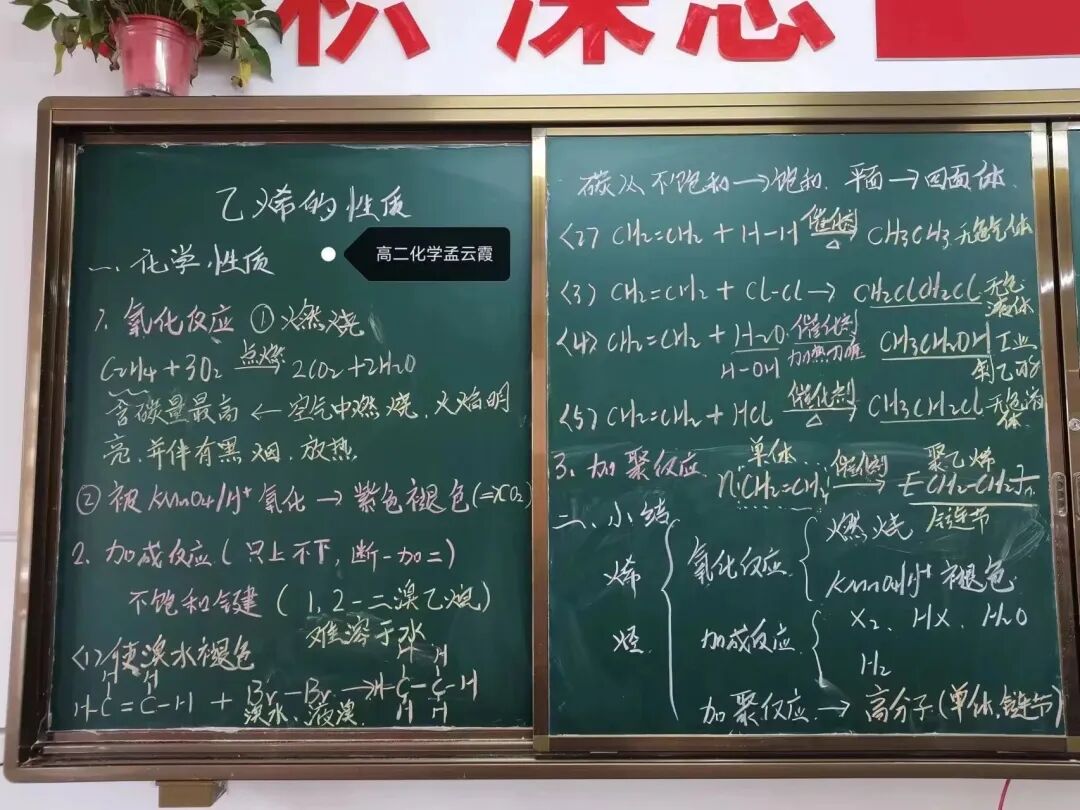 积 深 思
乙烯的性质
高二化学孟云霞
一、化学性质
1. 氧化反应 ①燃烧
C2H4+3O2 点燃→ 2CO2+2H2O
含碳量最高 ← 空气中燃烧，火焰明
亮，并伴有黑烟，放热
② 被KMnO4/H+氧化→紫色褪色(=>CO2)
2. 加成反应(只上不下，断一加二)
不饱和键 (1,2-二溴乙烷)
难溶于水
<1>使溴水褪色
H H H H
H-C=C-H + Br-Br→H-C-C-H
溴水、液溴 H H
碳从不饱和→饱和，平面→四面体
<2> CH2=CH2 + H-H 催化剂→△ CH3CH3 无色气体
<3> CH2=CH2 + Cl-Cl → CH2ClCH2Cl 无色液体
<4> CH2=CH2 + H2O 催化剂→加热加压 CH3CH2OH 工业制乙醇
H-OH
<5> CH2=CH2 + HCl 催化剂→△ CH3CH2Cl 无色液体
单体 聚乙烯
3、加聚反应 nCH2=CH2 催化剂→ [CH2-CH2]n
链节
二、小结
烯烃
氧化反应 燃烧
KMnO4/H+ 褪色
加成反应 X2、HX、H2O
H2
加聚反应→高分子(单体,链节)